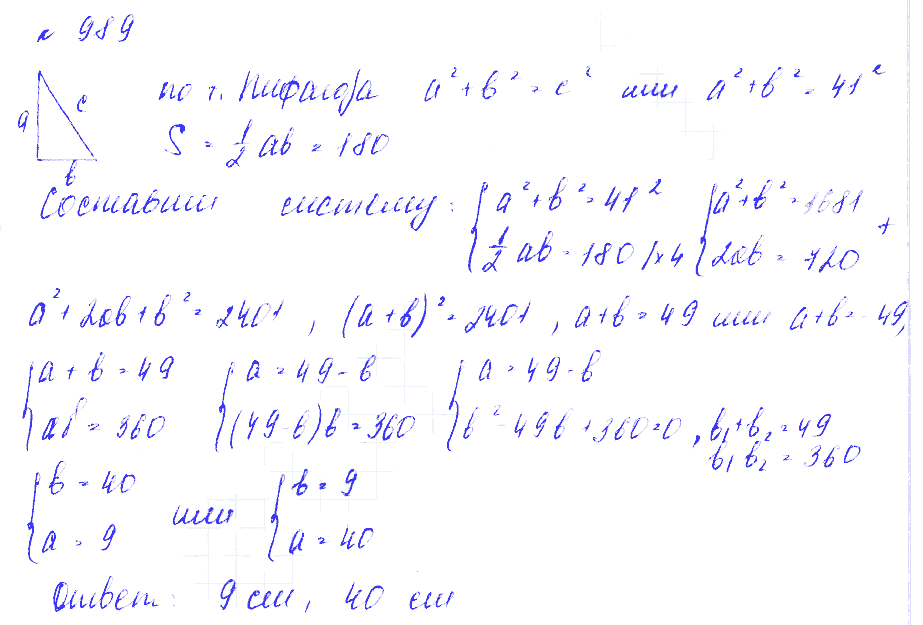 № 989
a c b
по т. Пифагора a² + b² = c² или a² + b² = 41²
S = 1/2 ab = 180
Составим систему: { a² + b² = 41² { a² + b² = 1681 +
{ 1/2 ab = 180 /×4 { 2ab = 720
a² + 2ab + b² = 2401 , (a + b)² = 2401 , a + b = 49 или a + b = -49,
{ a + b = 49 { a = 49 - b { a = 49 - b
{ ab = 360 { (49 - b)b = 360 { b² - 49b + 360 = 0 , b₁ + b₂ = 49
b₁ b₂ = 360
{ b = 40 или { b = 9
{ a = 9 { a = 40
Ответ: 9 см, 40 см